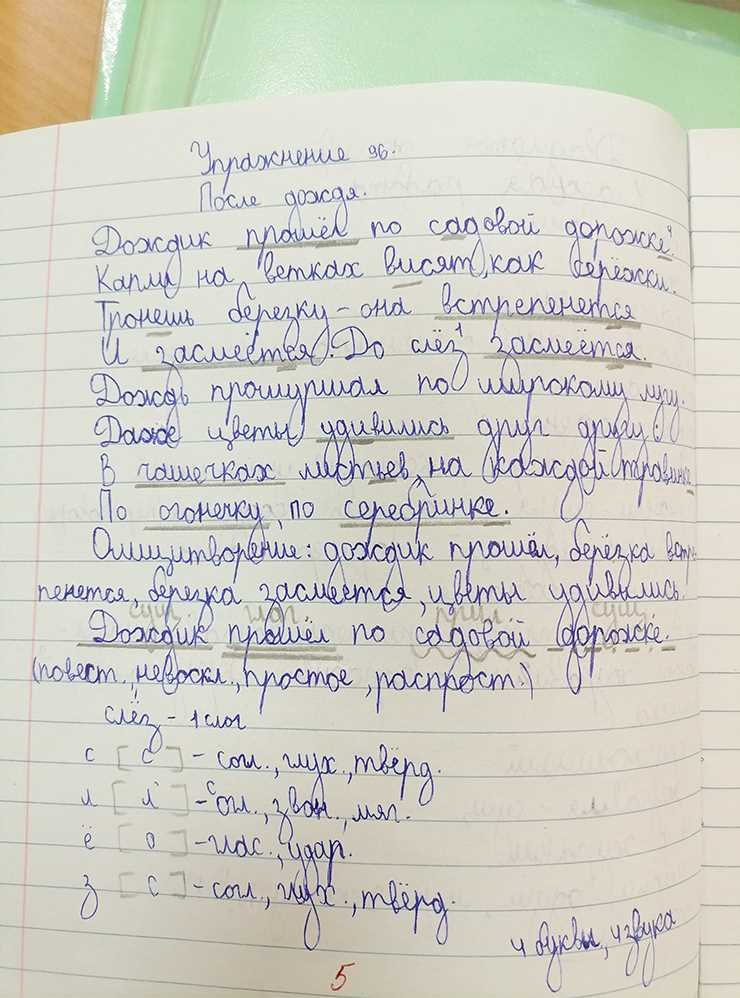 Упражнение 96.
После дождя.
Дождик прошёл по садовой дорожке⁴.
Капли на ветках висят, как серёжки.
Тронешь березку – она встрепенется
И засмеётся. До слёз¹ засмеётся.
Дождь прошуршал по широкому лугу.
Даже цветы удивились друг другу:
В чашечках листьев, на каждой травинке
По огонечку, по серебринке.
Олицитворение: дождик прошёл, берёзка встре-
пенется, березка засмеется, цветы удивились.
сущ. глаг прил. сущ
Дождик прошёл по садовой дорожке.
(повест., невоскл., простое, распрост.)
слёз – 1 слог
с [с] – согл., глух., твёрд.
л [л'] – согл., звон., мяг.
ё [о] – глас., удар.
з [с] – согл., глух., твёрд.
4 буквы, 4 звука
5